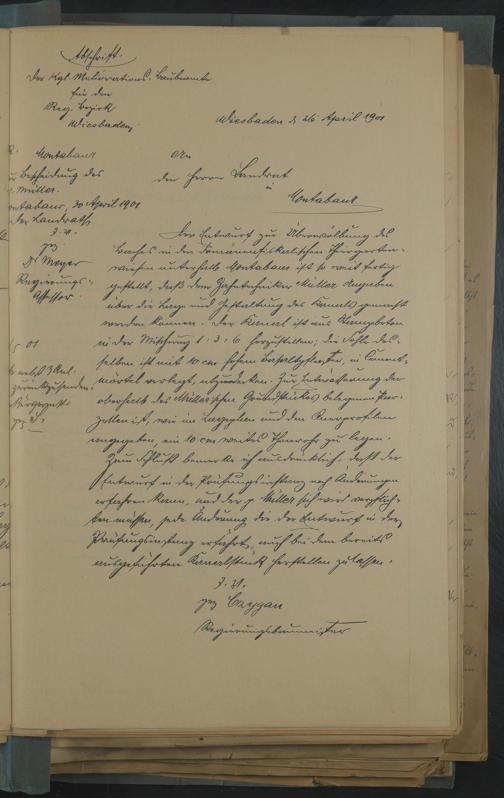 Abschrift.
Der Kgl. Meliorations-Baubeamte
für den
Reg. Bezirk
Wiesbaden
Wiesbaden d 26 April 1901
Montabaur
Bescheidung des
Müller.
Montabaur, 30 April 1901
Der Landrath
J. V.
gez
Dr Meyer
Regierungs-
Assessor
An
den Herrn Landrat
in
Montabaur
Der Entwurf zur Überwölbung des
Baches in den domänenfiskalischen
wiesen unterhalb Montabaur ist so weit fertig
gestellt, daß dem Müller Angaben
über die Lage und Gestaltung des Kanals gemacht
werden können. Der Kanal ist aus Stampfbeton
in der Mischung 1:3:6 herzustellen; die Sohle des-
selben ist mit 10 cm hohen Basaltpflaster, in Cement-
mörtel verlegt, abzudecken. Zur Entwässerung der
oberhalb des Müller'schen Grundstückes belegenen Par-
zellen ist, wie im Lageplan und den Querprofilen
angegeben, ein 10 cm weites Thonrohr zu legen.
Zum Schluß bemerke ich ausdrücklich, daß der
Entwurf in der Prüfungsinstanz noch Änderungen
erfahren kann, und der p Müller sich wird verpflich-
ten müssen, jede Änderung die der Entwurf in der
Prüfungsinstanz erfährt, auch bei dem bereits
ausgeführten Kanalstück herstellen zu lassen.
J. V.
gez Czygan
Regierungsbaumeister